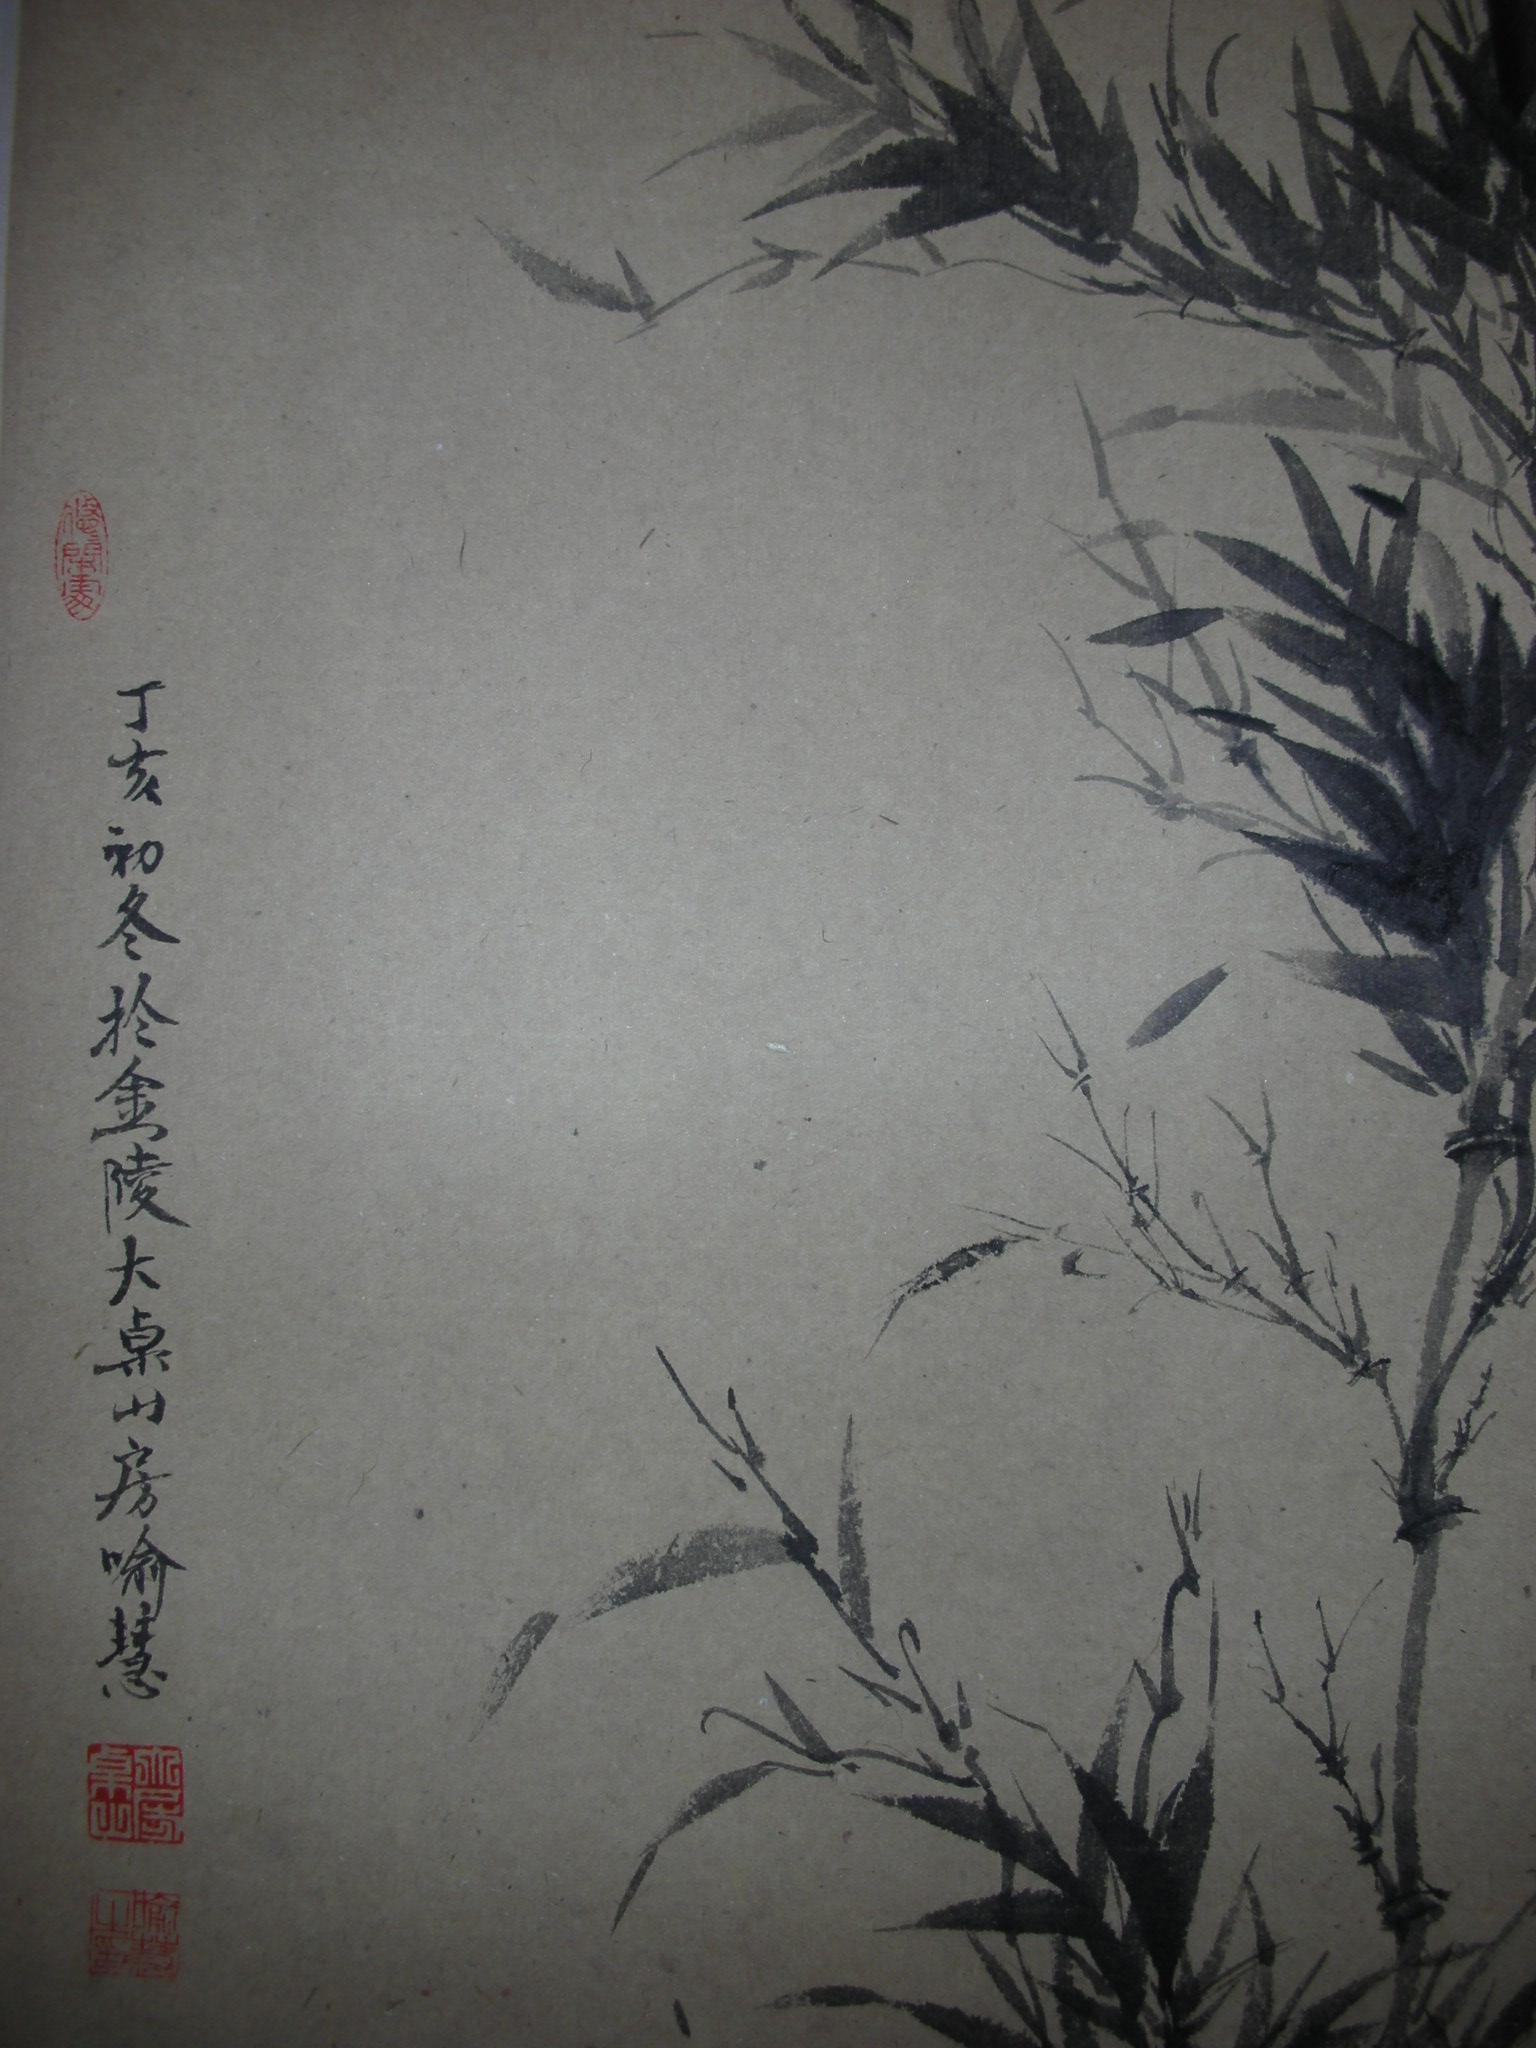 丁亥初冬於金陵大桌山房喻慧